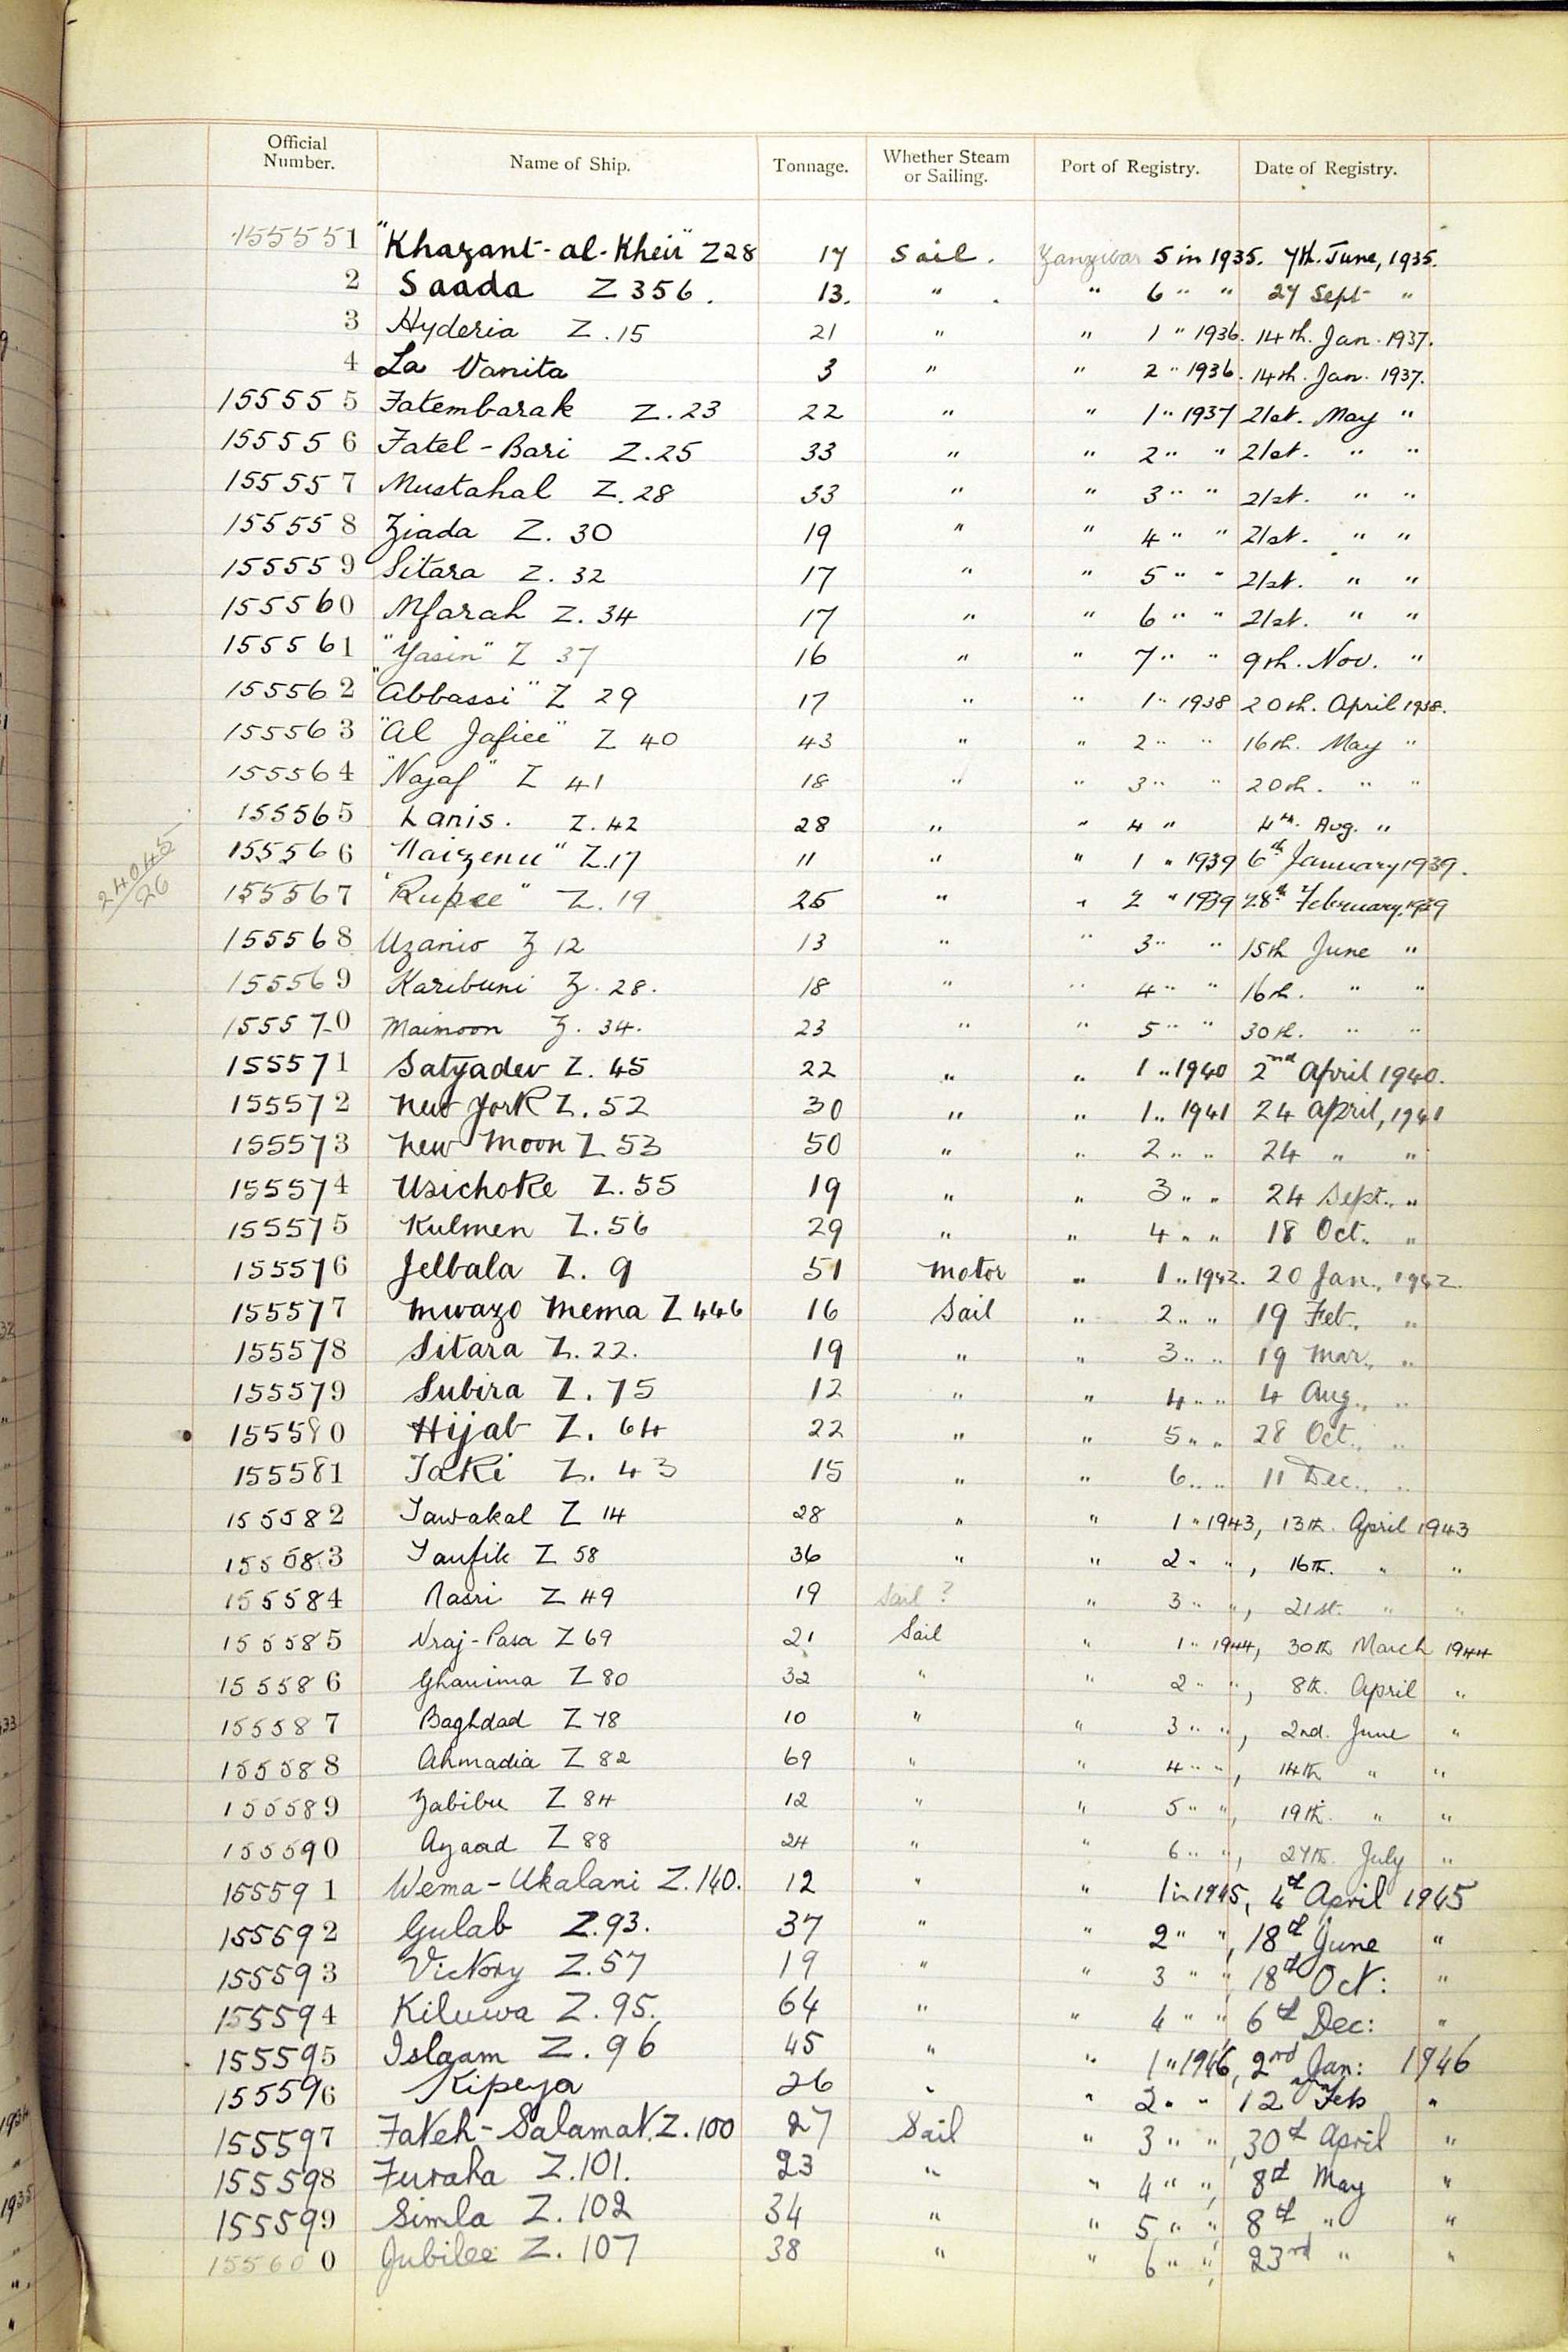 Official Number. Name of Ship. Tonnage. Whether Steam or Sailing. Port of Registry. Date of Registry.
155551 "Khazant-al-Kheir" Z28 17 Sail. Zanzibar 5 in 1935. 7th. June, 1935.
2 Saada Z 356. 13. " " 6 " " 27 Sept "
3 Hyderia Z.15 21 " " 1 " 1936. 14th. Jan. 1937.
4 La Vanita 3 " " 2 " 1936. 14th. Jan. 1937.
155555 Fatembarak Z.23 22 " " 1 " 1937 21st. May "
155556 Fatel-Bari Z.25 33 " " 2 " " 21st. " "
155557 Mustahal Z.28 33 " " 3 " " 21st. " "
155558 Ziada Z. 30 19 " " 4 " " 21st. " "
155559 Sitara Z. 32 17 " " 5 " " 21st. " "
155560 Mfarah Z. 34 17 " " 6 " " 21st. " "
155561 "Yasin" Z 37 16 " " 7 " " 9th. Nov. "
155562 "Abbassi" Z 29 17 " " 1 " 1938 20th. April 1938.
155563 "Al Jafiee" Z 40 43 " " 2 " " 16th. May "
155564 "Najaf" Z 41 18 " " 3 " " 20th. " "
155565 Lanis. Z.42 28 " " 4 " 4th. Aug. "
24045/26
155566 "Naizenu" Z.17 11 " " 1 " 1939 6th January 1939.
155567 "Rupee" Z.19 25 " " 2 " 1939 28th February, 1939
155568 Uzanio Z 12 13 " " 3 " " 15th June "
155569 Karibuni Z. 28. 18 " " 4 " " 16th. " "
155570 Maimoon Z. 34. 23 " " 5 " " 30th. " "
155571 Satyadev Z. 45 22 " " 1 " 1940 2nd April 1940.
155572 New York Z. 52 30 " " 1 " 1941 24 April, 1941
155573 New Moon Z 53 50 " " 2 " " 24 " "
155574 Usichoke Z. 55 19 " " 3 " " 24 Sept., "
155575 Kulmen Z. 56 29 " " 4 " " 18 Oct. "
155576 Jelbala Z. 9 51 Motor " 1 " 1942. 20 Jan., 1942.
155577 Mwazo Mema Z 446 16 Sail " 2 " " 19 Feb., "
155578 Sitara Z. 22. 19 " " 3 " " 19 Mar., "
155579 Subira Z. 75 12 " " 4 " " 4 Aug., "
155580 Hijab Z. 64 22 " " 5 " " 28 Oct., "
155581 Taki Z. 43 15 " " 6 " " 11 Dec., "
155582 Tawakal Z 14 28 " " 1 " 1943, 13th. April 1943
155583 Taufik Z 58 36 " " 2 " ", 16th. " "
155584 Nasri Z 49 19 Sail ? " 3 " ", 21st. " "
155585 Vraj-Pasa Z 69 21 Sail " 1 " 1944, 30th March 1944
155586 Ghanima Z 80 32 " " 2 " ", 8th. April "
155587 Baghdad Z 78 10 " " 3 " ", 2nd. June "
155588 Ahmadia Z 82 69 " " 4 " ", 14th " "
155589 Zabibu Z 84 12 " " 5 " ", 19th. " "
155590 Azaad Z 88 24 " " 6 " ", 27th. July "
155591 Wema-Ukalani Z.140. 12 " " 1 in 1945, 4th April 1945
155592 Gulab Z.93. 37 " " 2 " ", 18th June "
155593 Victory Z.57 19 " " 3 " ", 18th Oct: "
155594 Kiluwa Z.95. 64 " " 4 " ", 6th Dec: "
155595 Islaam Z. 96 45 " " 1 " 1946, 2nd Jan: 1946
155596 Kipeya 26 " " 2 " " 12 Feb "
155597 Fateh-Salamat. Z. 100 27 Sail " 3 " ", 30th April "
155598 Furaha Z.101. 23 " " 4 " ", 8th May "
155599 Simla Z. 102 34 " " 5 " ", 8th " "
155600 Jubilee Z. 107 38 " " 6 " ", 23rd " "